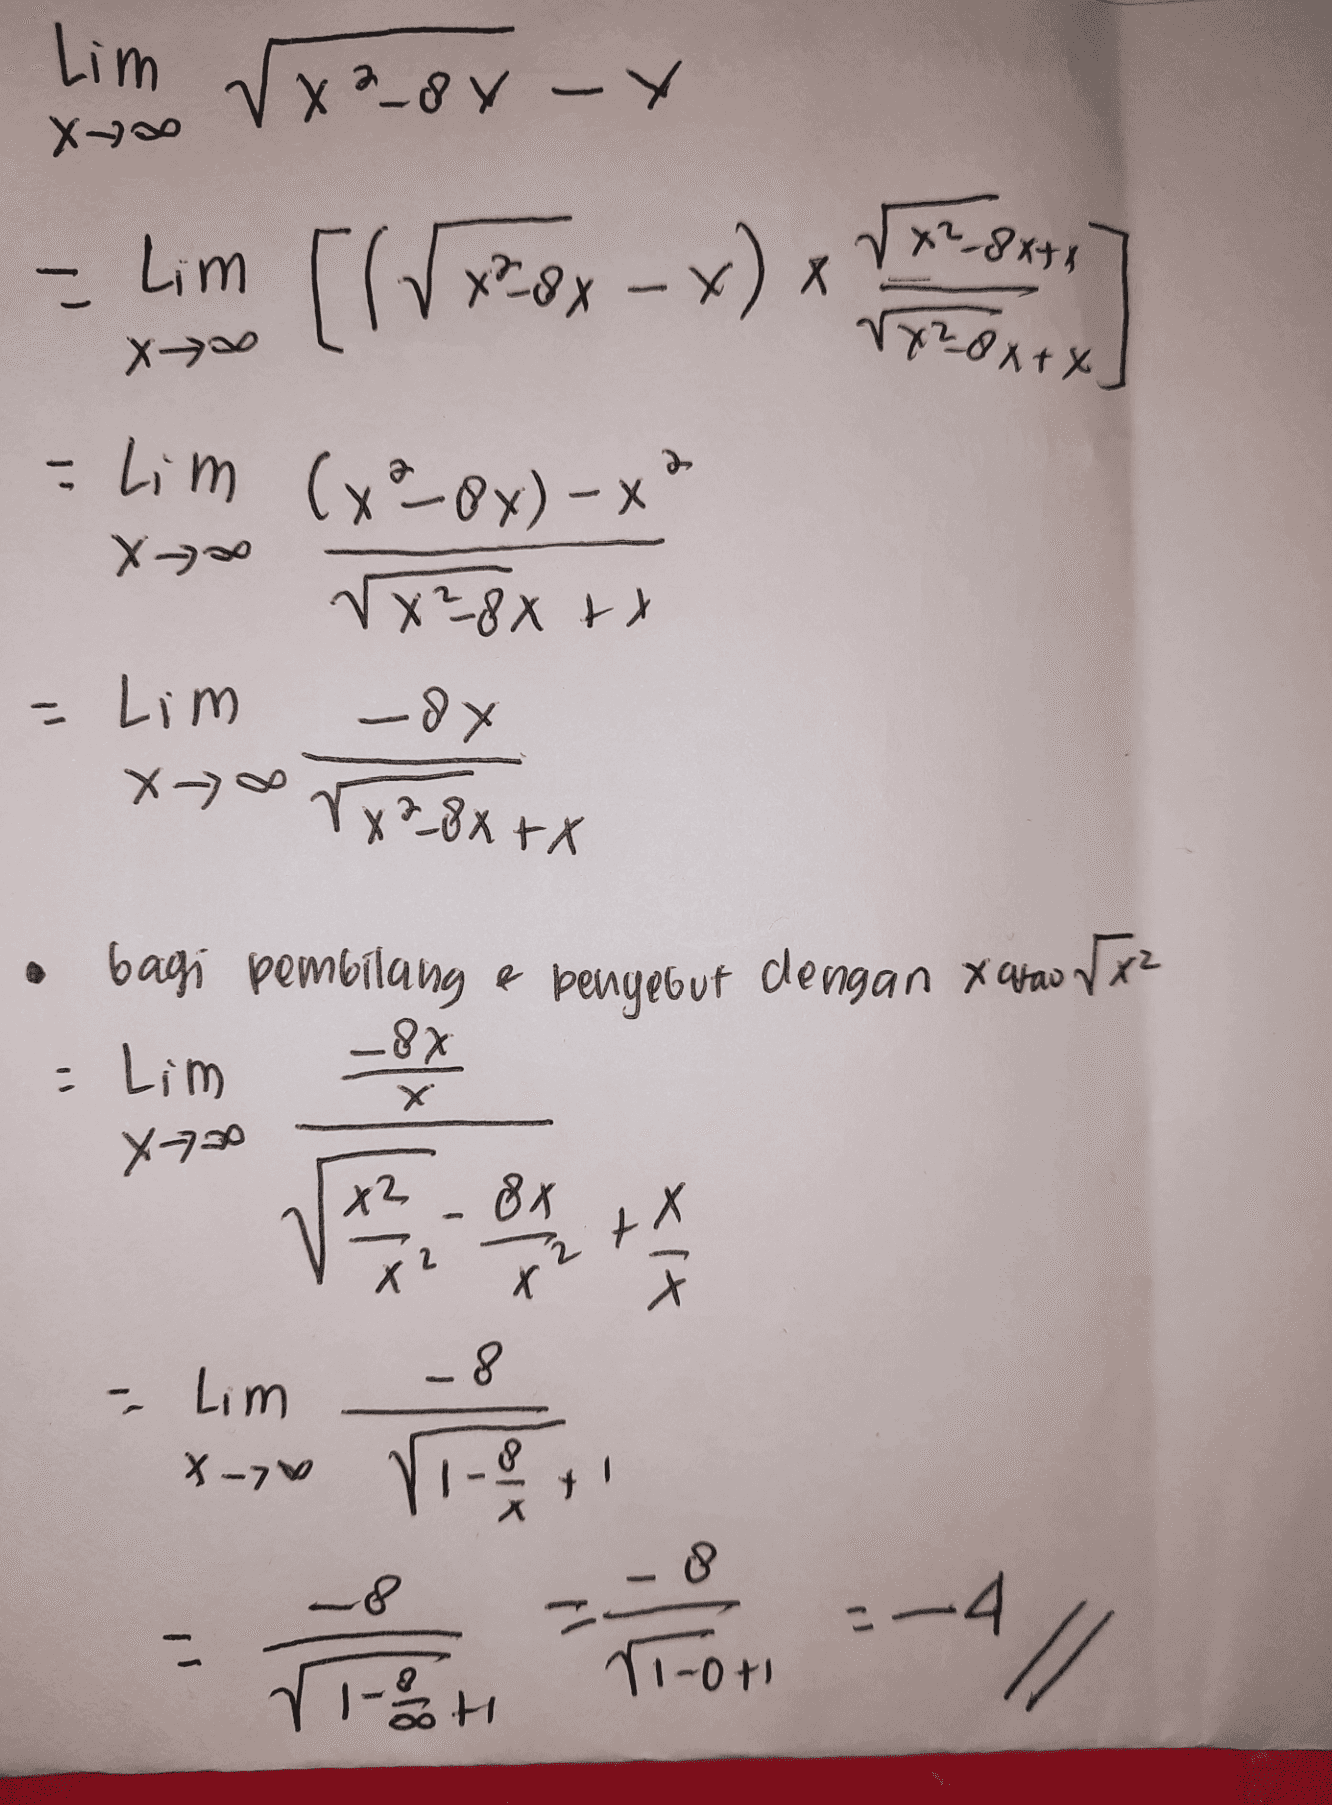 Lim √x²-8x - x
x→∞
= Lim [(√x²-8x - x) x √x²-8x+x / √x²-8x+x]
x→∞
= Lim (x²-8x) - x² / √x²-8x + x
x→∞
= Lim -8x / √x²-8x + x
x→∞
• bagi pembilang & penyebut dengan x atau √x²
= Lim -8x/x / √x²/x² - 8x/x² + x/x
x→∞
= Lim -8 / √1-8/x + 1
x→∞
= -8 / √1-8/∞ +1 = -8 / √1-0+1 = -4 //